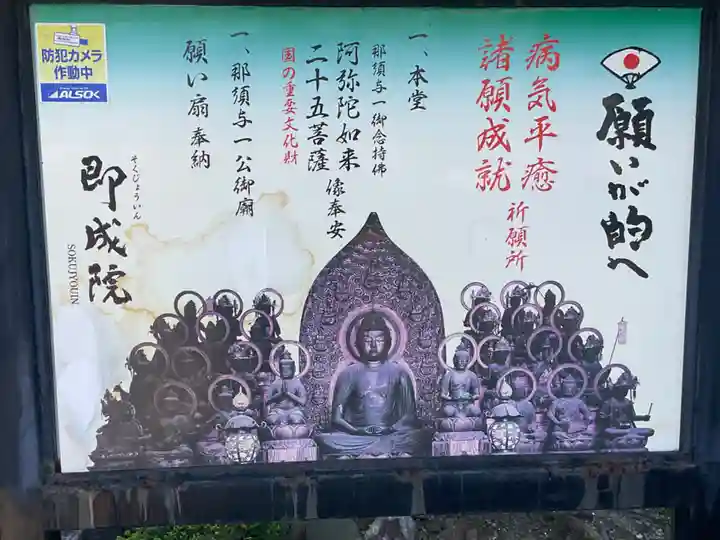 願いが的へ
病気平癒
諸願成就
祈願所
一、本堂
那須与一御念持佛
阿弥陀如来
二十五菩薩
像奉安
国の重要文化財
一、那須与一公御廟
願い扇奉納
そくじょういん
即成院
SOKUJYOUIN
防犯カメラ
作動中
ALSOK